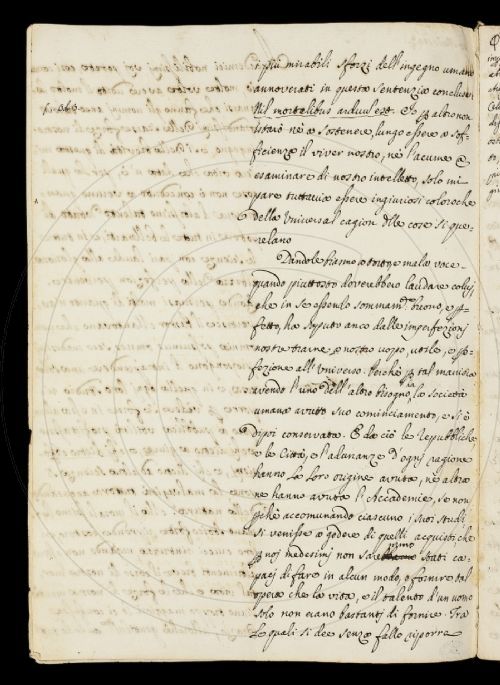 i più mirabili sforzi dell'ingegno umano
annoverati in questa sentenzia conclusa:
Nil mortalibus arduu est. E p altro non
starò nè a sostenere, lungo essere a sof-
ficienza il viver nostro, nè l'acume
esaminare di nostro intelletto, solo mi
pare tuttavia essere ingiuriosi coloro che
della Universal cagion dlle cose si que-
relano
Dandole hanno a torto mala voce
quando piuttosto dovrebbero laudare colui,
che in se essendo sommamte. buono, e p-
fetto, ha saputo anco dalle imperfezionj
nostre trarne a nostro uopo, utile, e p-
fezione all'Universo. Perchè p tal maniera
avendo l'uno dell'altro bisogno ha la società
umana avuto suo cominciamento, e si è
dipoi conservata. E da ciò le Repubbliche
e le Città, e l'adunanze d'ogni ragione
hanno la loro origine avuta, nè altra
ne hanno avuta l'Accademie, se non
pchè accomunando ciascuno i suoi studj
si venisse a godere di quelli acquisti che
p noi medesimj non saremmo stati ca-
pacj di fare in alcun modo, e fornire tal
opera che la vita, e il talento d'un uomo
solo non erano bastantj di fornire. Tra
le quali si dee senza fallo riporre